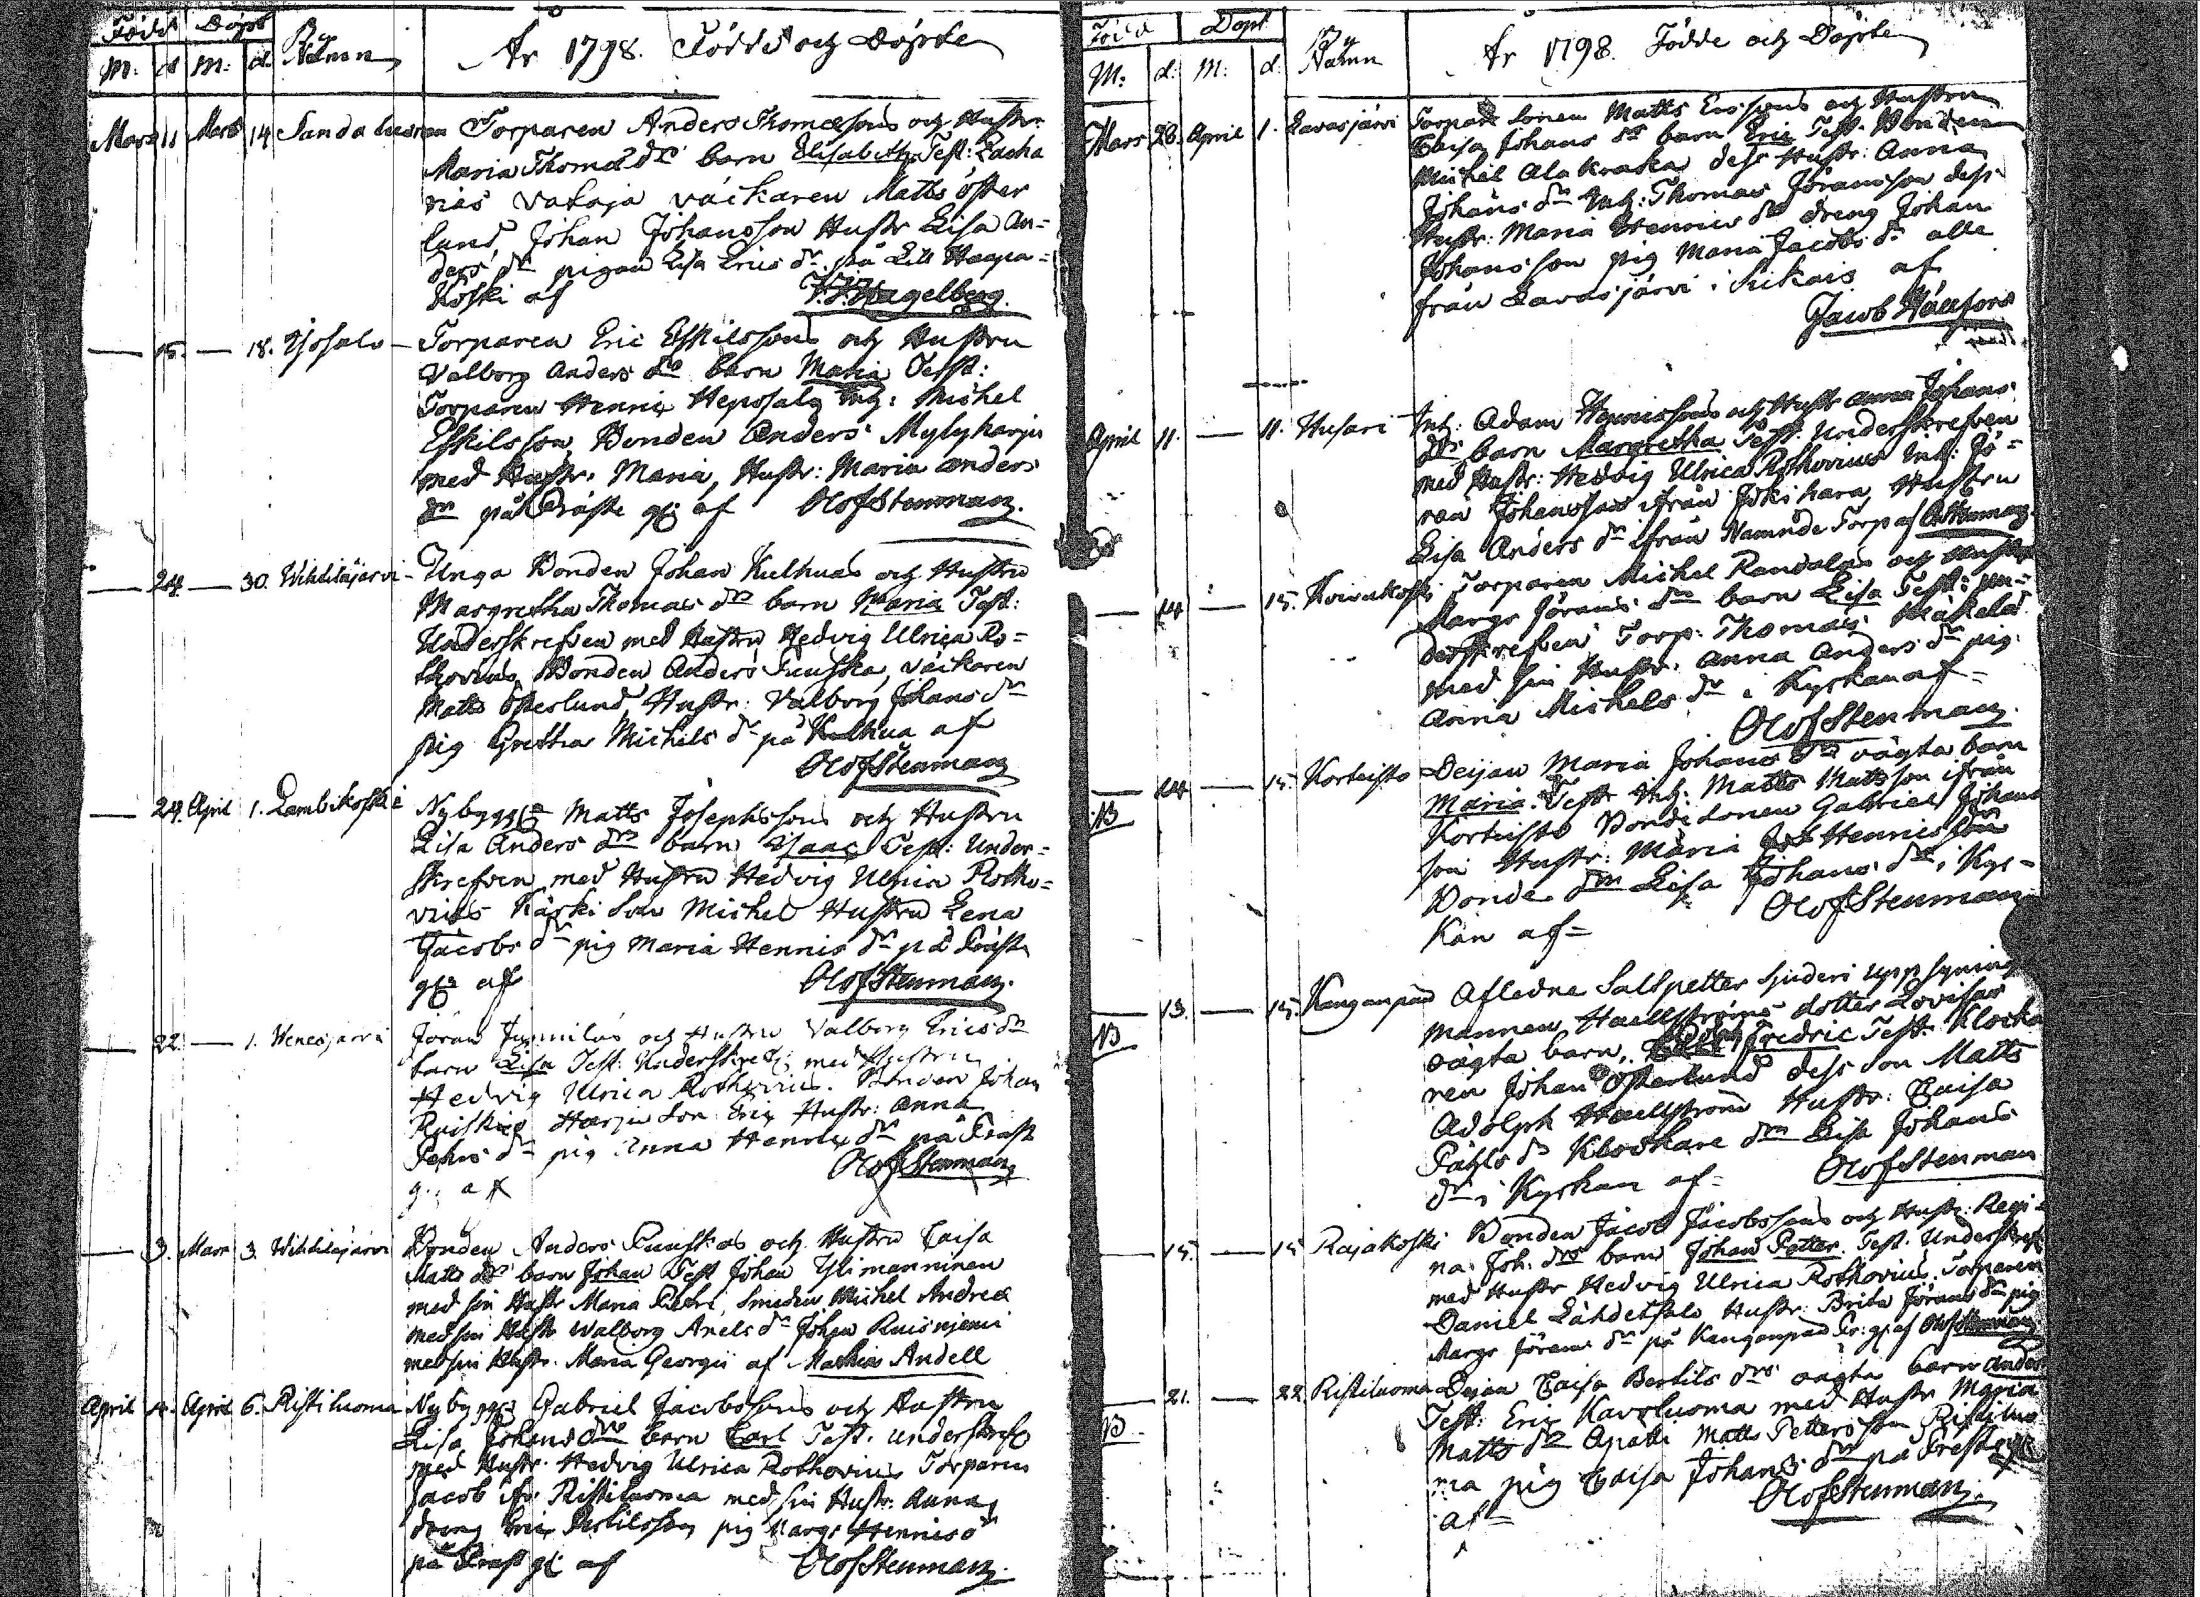 Född Döpt By
M: d M: d. Namn År 1798. Födde och Döpte
Mars 11 Mars 14 Sandaluoma Torparen Anders Thomæsons och Hustr:
Maria Thomæ dr barn Elisabeth Test: Zacha
rias Vataja väckaren Matts Öster
lund, Johan Johansson Hustr Lisa An=
ders dr pigan Lisa Erics dr på Lill Haapa=
koski af Hagelberg.
— 15. — 18. Torparen Eric Eskilssons och Hustru
Valborg Anders drs barn Maria Test:
Torparen Henric Heposalo Inh: Michel
Eskilsson, Bonden Anders Mylyharju
med Hustr: Maria, Hustr: Maria Anders
dr på Präste gl: af Olof Stenman.
— 24. — 30. Wihtiläjärvi Unga Bonden Johan Kulhuas och Hustru
Margretha Thomas drs barn Maria Test:
Underskrefven med Hustru Hedvig Ulrica Ro=
thovius, Bonden Anders Fuuska, väckaren
Matts Österlund, Hustr: Valborg Johans dr
pig Gretha Michels dr på Kulhua af
Olof Stenman
— 29. April 1. Lambikoski Nybygg: Matts Josephssons och Hustru
Lisa Anders drs barn Isaac Test: Under=
skrefven med Hustru Hedvig Ulrica Rotho=
vius Käski Son Michel Hustru Lena
Jacobs dr pig Maria Hennis dr på Präste
gl: af Olof Stenman.
— 22. — 1. Venesjärvi Jöran Junnilas och Hustru Valborg Erics dr
barn Lisa Test: Underskref: med Hustru
Hedvig Ulrica Rothovius. Bonden Johan
Harju Son Eric Hustr: Anna
dr pig Anna Henric dr på Präst
g: af Olof Stenman
— 3. Mars 3. Wihtiläjärvi Bonden Anders Fuuskas och Hustru Caisa
Matts drs barn Johan Test Johan Ylimanninen
med sin Hustr Maria, Smeden Michel Andreæ
med sin Hustr Walborg Axels dr Johan Ruisniemi
med sin Hustr. Maria Georgii af Mathias Andell
April 4. April 6. Ristiluoma Nybygg: Gabriel Jacobssons och Hustru
Lisa Johans drs barn Carl Test. underskref:
med Hustr. Hedvig Ulrica Rothovius Torparen
Jacob Ristiluoma med sin Hustr: Anna,
dreng Eric Bertilsson, pig Margr Hennis dr
på Präst gl: af Olof Stenman.
Född Döpt By
M: d: M: d: Namn År 1798. Födde och Döpte
Mars 28. April 1. Lavasjärvi Torpare Sonen Matts Erssons och Hustru
Caisa Johans drs barn Eric Test. Bonden
Michel Alakraka dess Hustr: Anna
Johans dr Inh: Thomas Jöransson dess
Hustr: Maria Hennis dr dreng Johan
Johansson pig Maria Jacobs dr alla
från Lavasjärvi i Sikais af
Jacob
April 11. — 11. Husari Inh: Adam Hennissons och Hustr Anna Johans
drs barn Margretha Test. Underskrefven
med Hustr: Hedvig Ulrica Rothovius Inh: Jö=
ran Johansson ifrån Jokihara, Hustru
Lisa Anders dr ifrån Namnde Torp af OStenman.
— 14 — 15. Koivukoski Torparen Michel Randalas och Hustr
Margr Jörans drs barn Lisa Test: un=
derskrefven Torp: Thomas Mäkelä
med sin Hustr. Anna Anders dr pig.
Anna Michels dr i Kyrkan af =
Olof Stenman.
— 14 — 15. Korteisto Deijan Maria Johans drs oägta barn
NB Maria. Test Inh: Matts Mattsson ifrån
Korteisto Bonde sonen Gabriel Johans
son Hustr: Maria Hennis
Bonde drn Lisa Johans dr i Kyr=
kan af = Olof Stenman
— 13. — 15. Kanganpää Afledne Saltpetter Sjuderi uppsynings
NB mannen Haellströms dotter Lovisas
oägta barn, Fredric Test. Klocka
ren Johan Österlund dess Son Matts
Adolph Haellström Hustr. Caisa
Påhls dr Klockare drn Lisa Johans
dr i Kyrkan af = Olof Stenman
— 15. — 15 Rajakoski Bonden Jacob Jacobssons och Hustr: Regi=
na Joh: drs barn Johan Petter. Test. Underskref:
med Hustr Hedvig Ulrica Rothovius. Torparen
Daniel Lähdesalo Hustr. Brita Jörans dr pig
Margr Jörans dr på Kanganpää Pr: gl: af Olof Stenman
— 21. — 22. Ristiluoma Dejan Caisa Bertils drs oägta barn Anders
NB Test: Eric Kavoluoma med Hustr Maria
Matts dr Matts Pettersson Ristiluo
ma pig Caisa Johans dr på Preste gl
af = Olof Stenman.